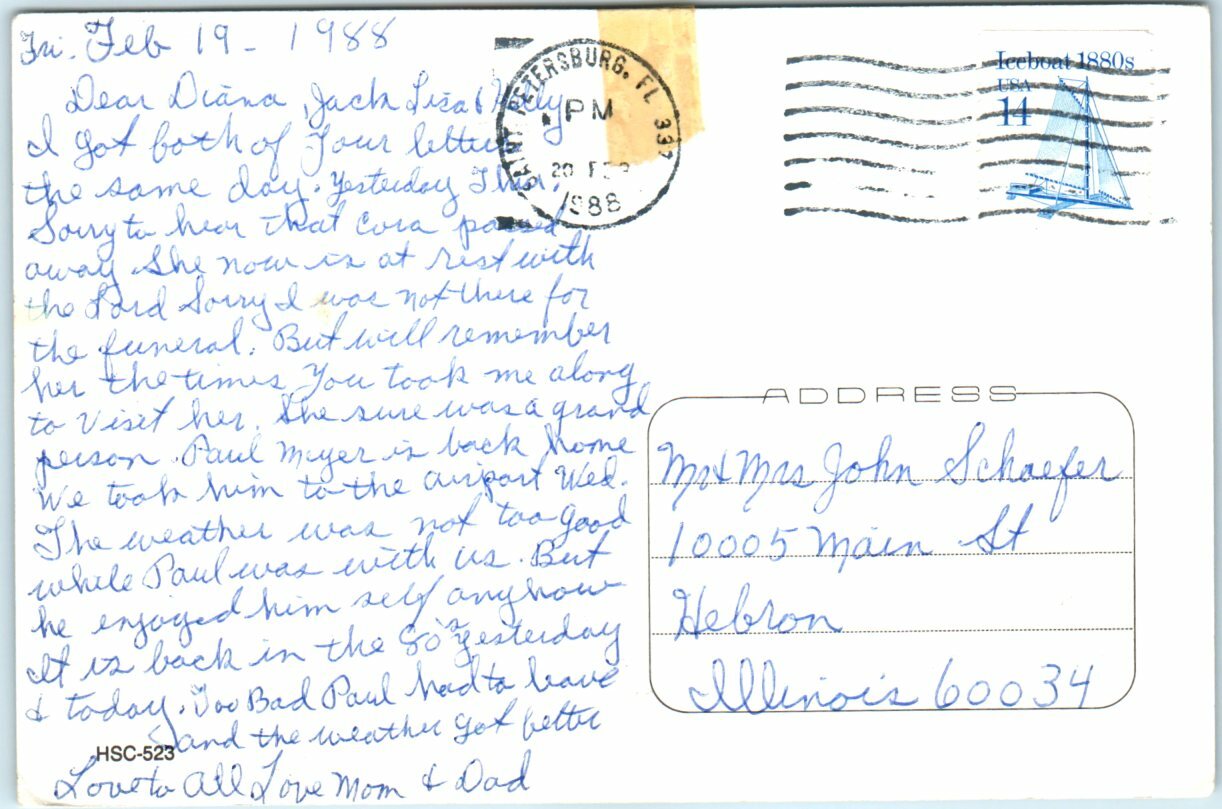 Fri. Feb 19 - 1988
Dear Diana, Jack Lisa &
I got both of Your letters
the same day. Yesterday Thur.
Sorry to hear that Cora passed
away She now is at rest with
the Lord Sorry I was not there for
the funeral. But will remember
her the times You took me along
to Visit her. She sure was a grand
person. Paul Meyer is back home
We took him to the airport Wed.
The weather was not too good
while Paul was with us. But
he enjoyed him self anyhow
It is back in the 80's yesterday
& today. Too Bad Paul had to leave
and the weather got better
HSC-523
Love to All Love Mom & Dad
SAINT PETERSBURG, FL
PM
20 FEB
1988
Iceboat 1880s
USA
14
ADDRESS
Mr & Mrs John Schaefer
10005 Main St
Hebron
Illinois 60034